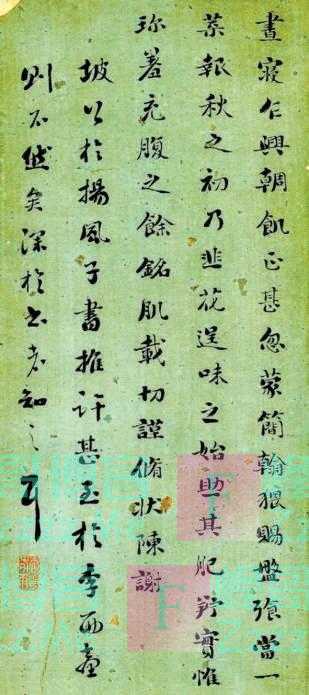 晝寢乍興輖飢正甚忽蒙簡翰猥賜盤飧當一
葉報秋之初乃韭花逞味之始助其肥羜實惟
珎羞充腹之餘銘肌載切謹脩狀陳謝
坡公於揚風子書推許甚至於李西臺
則不然矣深於書者知之耳